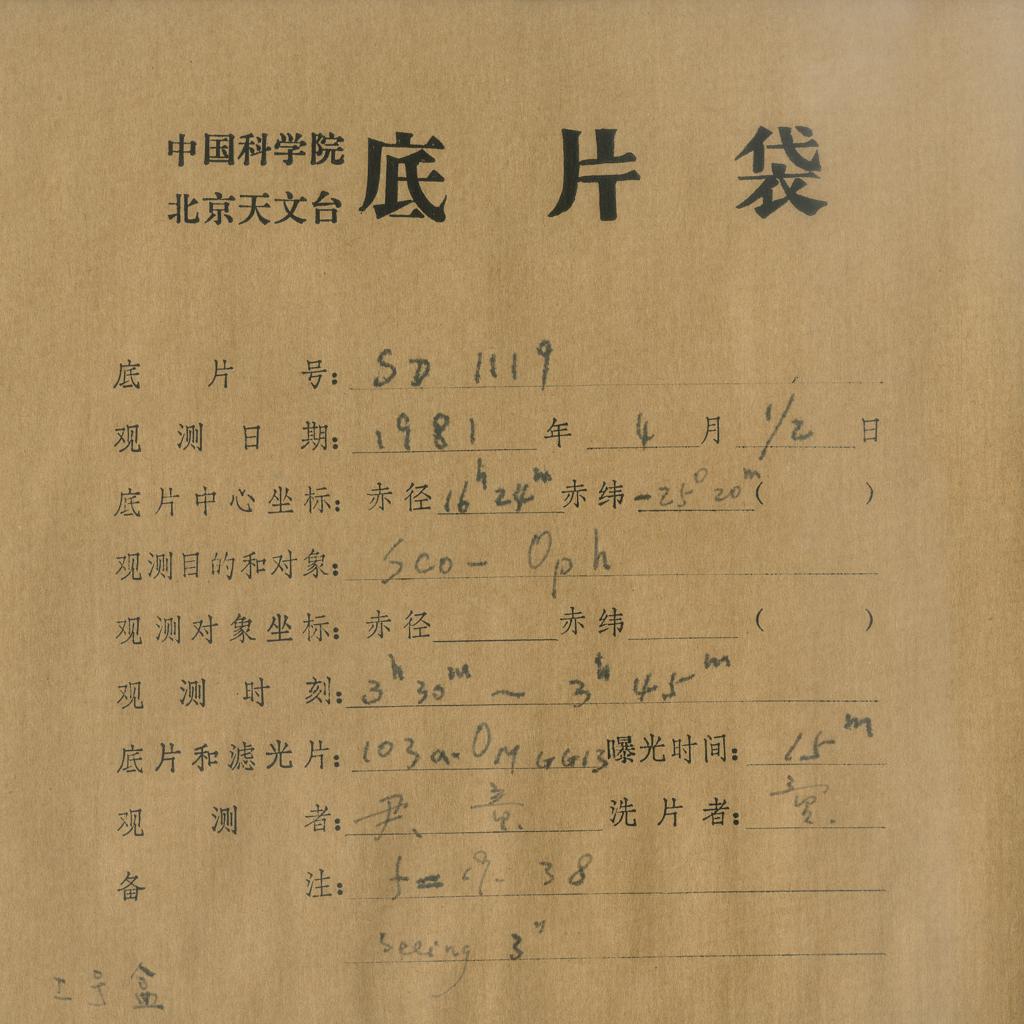 中国科学院
北京天文台
底片袋
底片号: SD 1119
观测日期: 1981年4月1/2日
底片中心坐标: 赤径16h24m赤纬-25°20m( )
观测目的和对象: Sco-Oph
观测对象坐标: 赤径 赤纬 ( )
观测时刻: 3h30m~3h45m
底片和滤光片: 103a-O GG13曝光时间: 15m
观测者: 尹、 洗片者:
备注: f= 9.38
seeing 3"
号盒